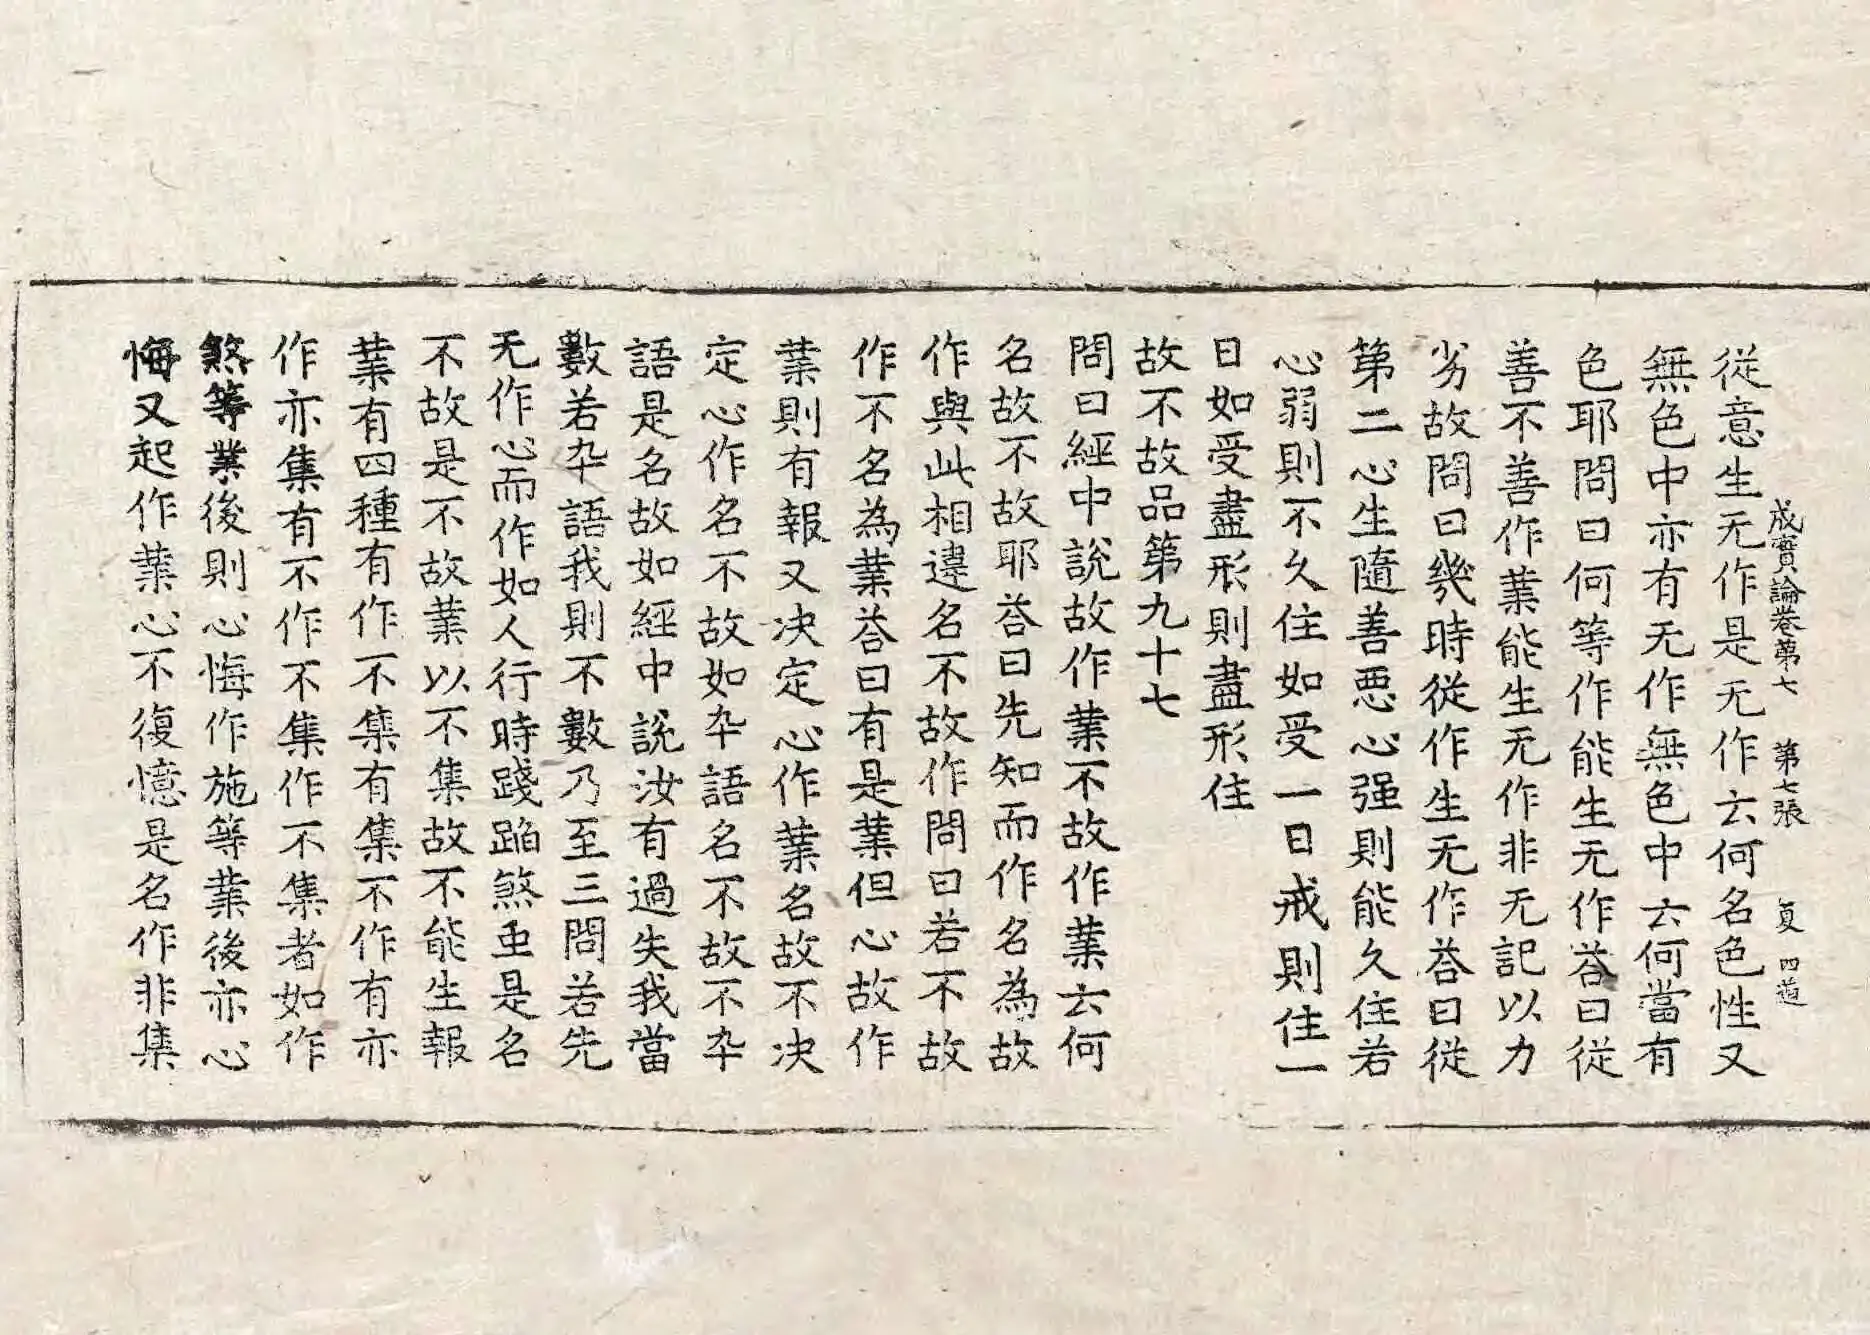 成實論卷苐七　苐七張　夏　四道
從意生无作是无作云何名色性又
無色中亦有无作無色中云何當有
色耶問曰何等作能生无作荅曰從
善不善作業能生无作非无記以力
劣故問曰幾時從作生无作荅曰從
第二心生隨善惡心强則能久住若
心弱則不久住如受一日戒則住一
日如受盡形則盡形住
故不故品第九十七
問曰經中說故作業不故作業云何
名故不故耶荅曰先知而作名為故
作與此相違名不故作問曰若不故
作不名為業荅曰有是業但心故作
業則有報又决定心作業名故不决
定心作名不故如卒語名不故不卒
語是名故如經中說汝有過失我當
數若卒語我則不數乃至三問若先
无作心而作如人行時踐蹈煞虫是名
不故是不故業以不集故不能生報
業有四種有作不集有集不作有亦
作亦集有不作不集作不集者如作
煞等業後則心悔作施等業後亦心
悔又起作業心不復憶是名作非集